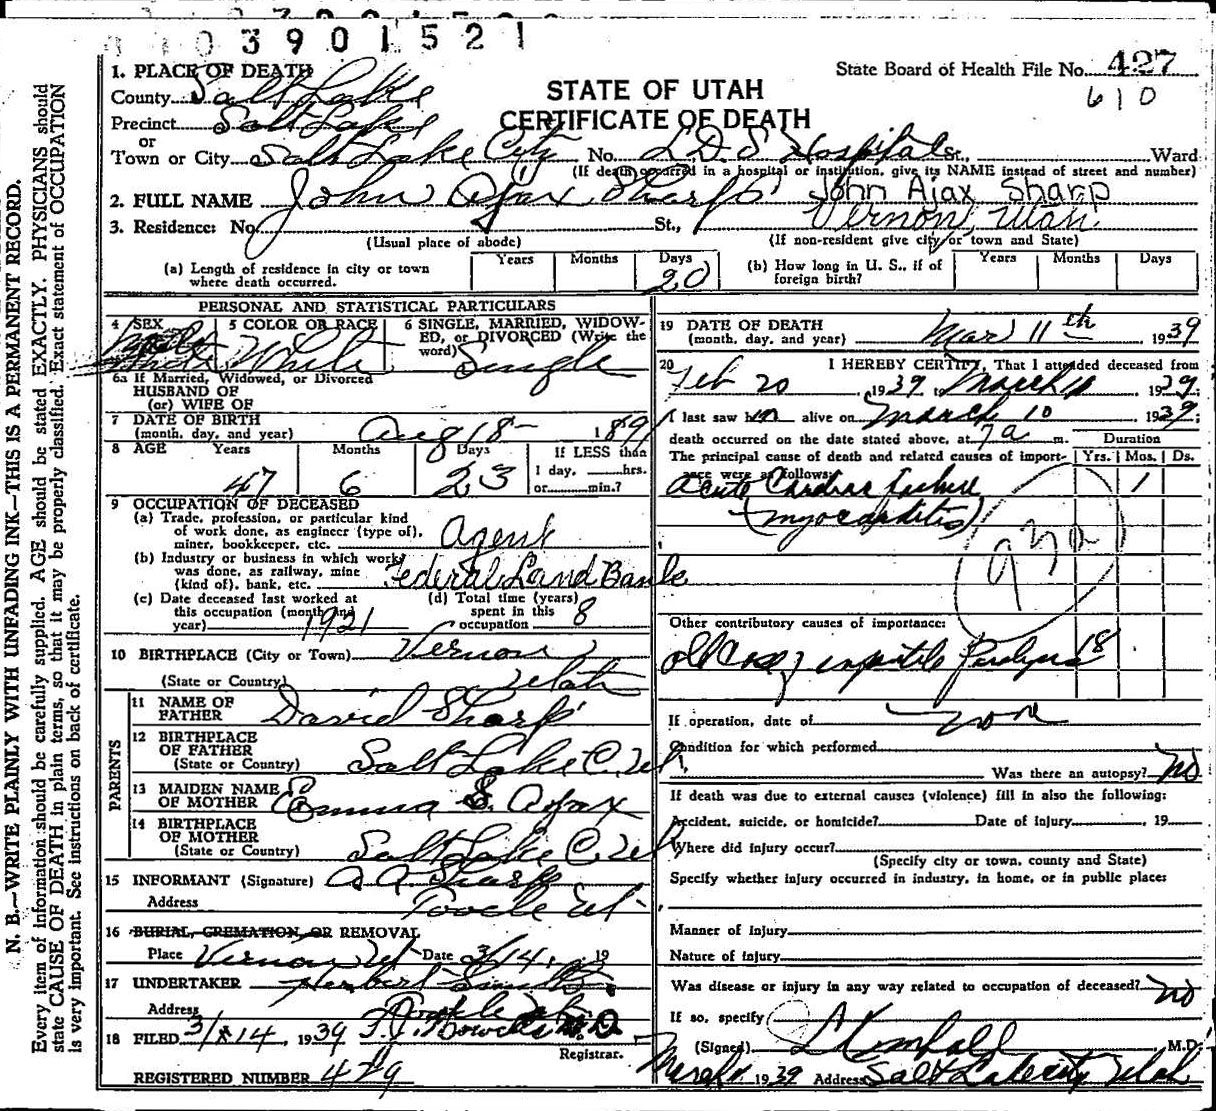 3901521
State Board of Health File No. 427
610
STATE OF UTAH
CERTIFICATE OF DEATH
1. PLACE OF DEATH
County Salt Lake
Precinct Salt Lake
or
Town or City Salt Lake City No. L.D.S Hospital St., Ward
(If death occurred in a hospital or institution, give its NAME instead of street and number)
2. FULL NAME John Ajax Sharp John Ajax Sharp
3. Residence: No. St., Vernon, Utah
(Usual place of abode) (If non-resident give city or town and State)
(a) Length of residence in city or town where death occurred. Years Months Days 20
(b) How long in U. S., if of foreign birth? Years Months Days
PERSONAL AND STATISTICAL PARTICULARS
4 SEX Male
5 COLOR OR RACE White
6 SINGLE, MARRIED, WIDOWED, or DIVORCED (Write the word) Single
6a If Married, Widowed, or Divorced
HUSBAND OF
(or) WIFE OF
7 DATE OF BIRTH
(month, day, and year) Aug 18 - 1891
8 AGE Years Months Days If LESS than
47 6 23 1 day, hrs.
or min.?
9 OCCUPATION OF DECEASED
(a) Trade, profession, or particular kind
of work done, as engineer (type of),
miner, bookkeeper, etc. Agent
(b) Industry or business in which work
was done, as railway, mine
(kind of), bank, etc. Federal Land Bank
(c) Date deceased last worked at
this occupation (month and
year) 1921
(d) Total time (years)
spent in this
occupation 8
10 BIRTHPLACE (City or Town) Vernon
(State or Country) Utah
PARENTS
11 NAME OF
FATHER David Sharp
12 BIRTHPLACE
OF FATHER
(State or Country) Salt Lake C. Ut.
13 MAIDEN NAME
OF MOTHER Emma S. Ajax
14 BIRTHPLACE
OF MOTHER
(State or Country) Salt Lake C. Ut
15 INFORMANT (Signature) A A Sharp
Address Tooele Ut-
16 BURIAL, CREMATION, OR REMOVAL
Place Vernon Ut Date 3/14, 19
17 UNDERTAKER Herbert
Address Tooele
18 FILED 3/14, 1939
Registrar.
REGISTERED NUMBER 429
19 DATE OF DEATH
(month, day, and year) Mar 11th 1939
20 I HEREBY CERTIFY, That I attended deceased from
Feb 20, 1939, March 10, 1939;
I last saw him alive on March 10 1939;
death occurred on the date stated above, at 7 a m.
The principal cause of death and related causes of importance were as follows: Duration
Yrs. Mos. Ds.
Acute Cardiac failure 1
(myocarditis)
Other contributory causes of importance:
old case of infantile Paralysis 18
If operation, date of non
Condition for which performed
Was there an autopsy? no
If death was due to external causes (violence) fill in also the following:
Accident, suicide, or homicide? Date of injury , 19
Where did injury occur?
(Specify city or town, county and State)
Specify whether injury occurred in industry, in home, or in public place:
Manner of injury
Nature of injury
Was disease or injury in any way related to occupation of deceased? no
If so, specify
(Signed) M.D.
1939 Address Salt Lake City Utah
N. B.—WRITE PLAINLY WITH UNFADING INK—THIS IS A PERMANENT RECORD.
Every item of information should be carefully supplied. AGE should be stated EXACTLY. PHYSICIANS should
state CAUSE OF DEATH in plain terms, so that it may be properly classified. Exact statement of OCCUPATION
is very important. See instructions on back of certificate.